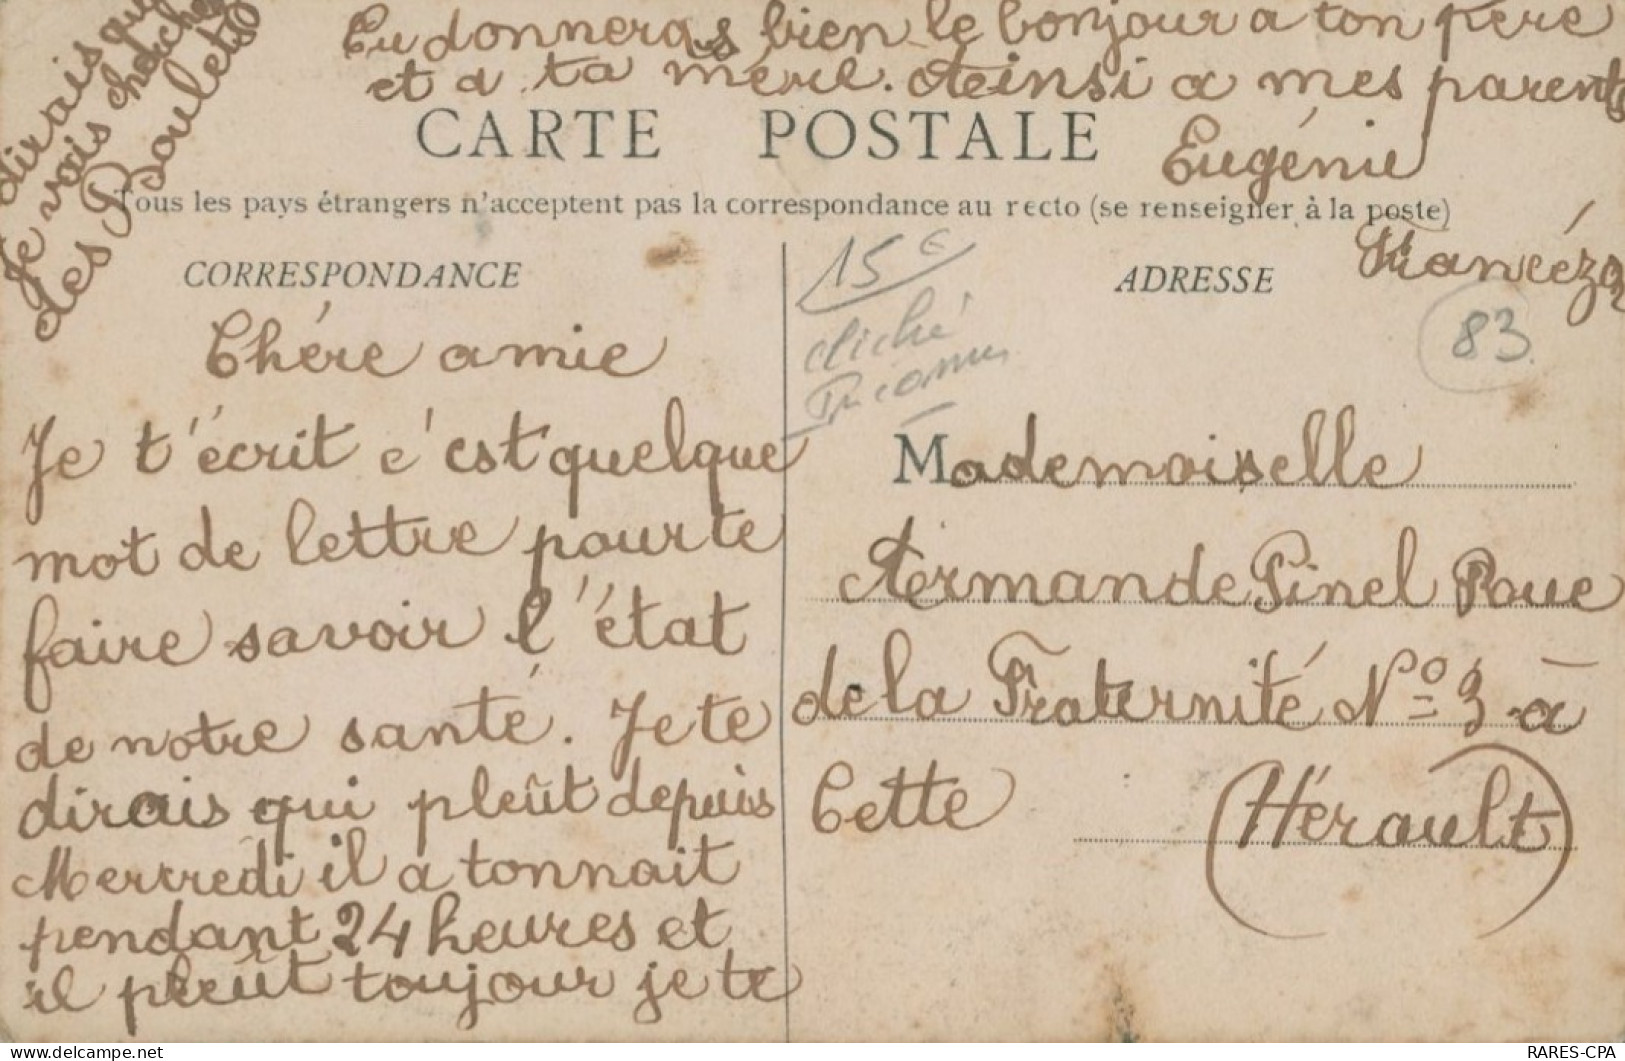 Tu donneras bien le bonjour a ton père
et a ta mére. Ainsi a mes parents
Eugénie
dirais que
Je vais chercher
des Boulets
CARTE POSTALE
Tous les pays étrangers n'acceptent pas la correspondance au recto (se renseigner à la poste)
CORRESPONDANCE
ADRESSE
15 €
cliché
83
Chére amie
Je t'écrit c'est quelque
mot de lettre pour te
faire savoir l'état
de notre santé. Je te
dirais qui pleût depuis
Mercredi il a tonnait
pendant 24 heures et
il pleût toujour je te
Mademoiselle
Armande Pinel Roue
de la Fraternité No 3 à
Cette (Hérault)
RARES-CPA